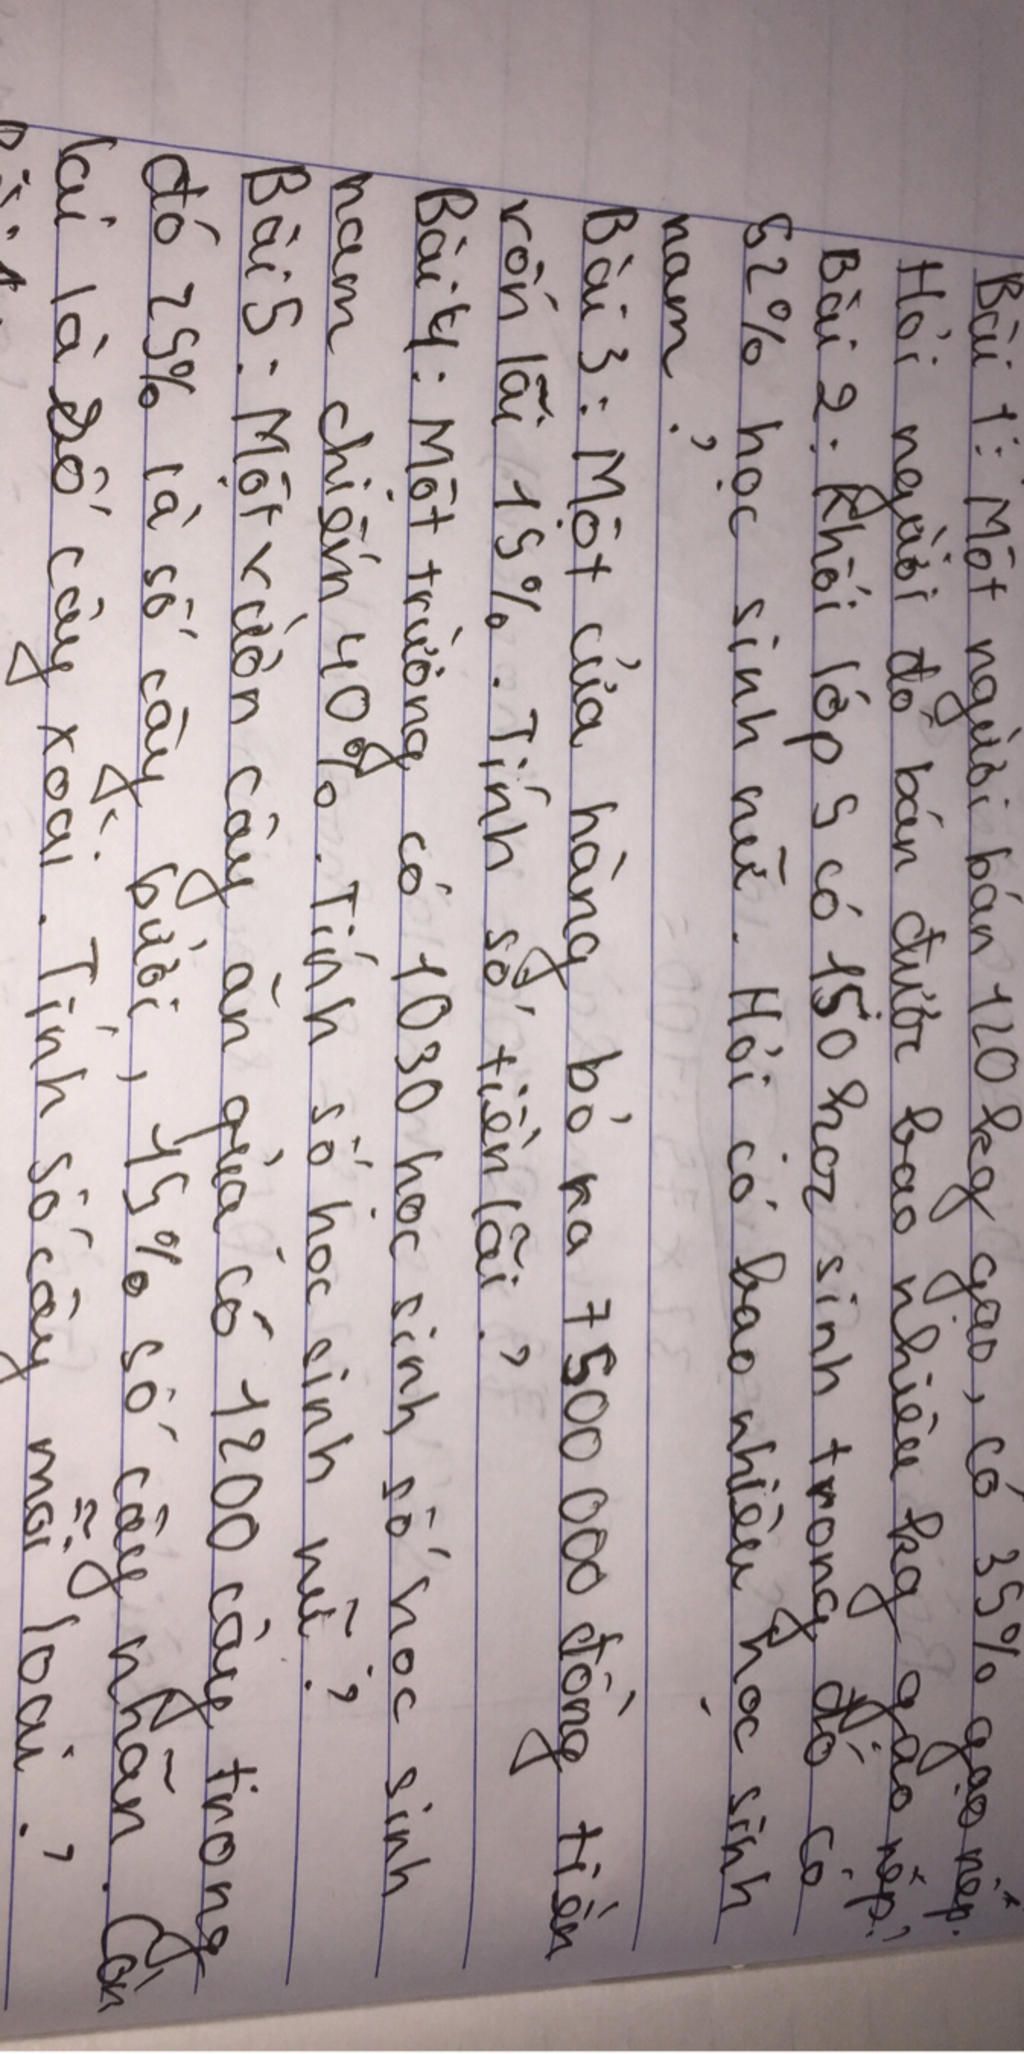 Bài 1: Một người bán 120 kg gạo, có 35% gạo nếp.
Hỏi người đó bán được bao nhiêu kg gạo nếp?
Bài 2: Khối lớp 5 có 150 học sinh trong đó có
52% học sinh nữ. Hỏi có bao nhiêu học sinh
nam?
Bài 3: Một cửa hàng bỏ ra 7500 000 đồng tiền
vốn lãi 15%. Tính số tiền lãi?
Bài 4: Một trường có 1030 học sinh, số học sinh
nam chiếm 40%. Tính số học sinh nữ?
Bài 5: Một vườn cây ăn quả có 1200 cây trong
đó 25% là số cây bưởi, 15% số cây nhãn. Còn
lại là số cây xoài. Tính số cây mỗi loại?